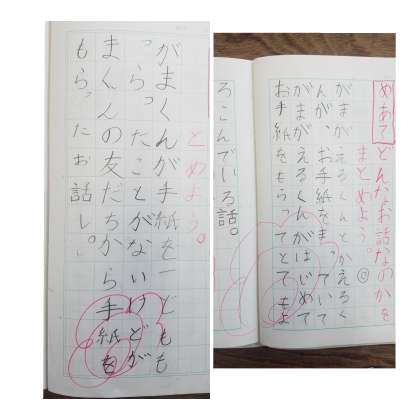 めあて どんなお話なのかを
まとめよう
がまがえるくんとかえるく
んが、お手紙をまっていて
がまがえるくんがはじめて
お手紙をもらってとてもよ
ろこんでいる話。
とめよう。
がまくんが手紙を一どもも
らったことがないけどが
まくんの友だちから手紙を
もらったお話し。